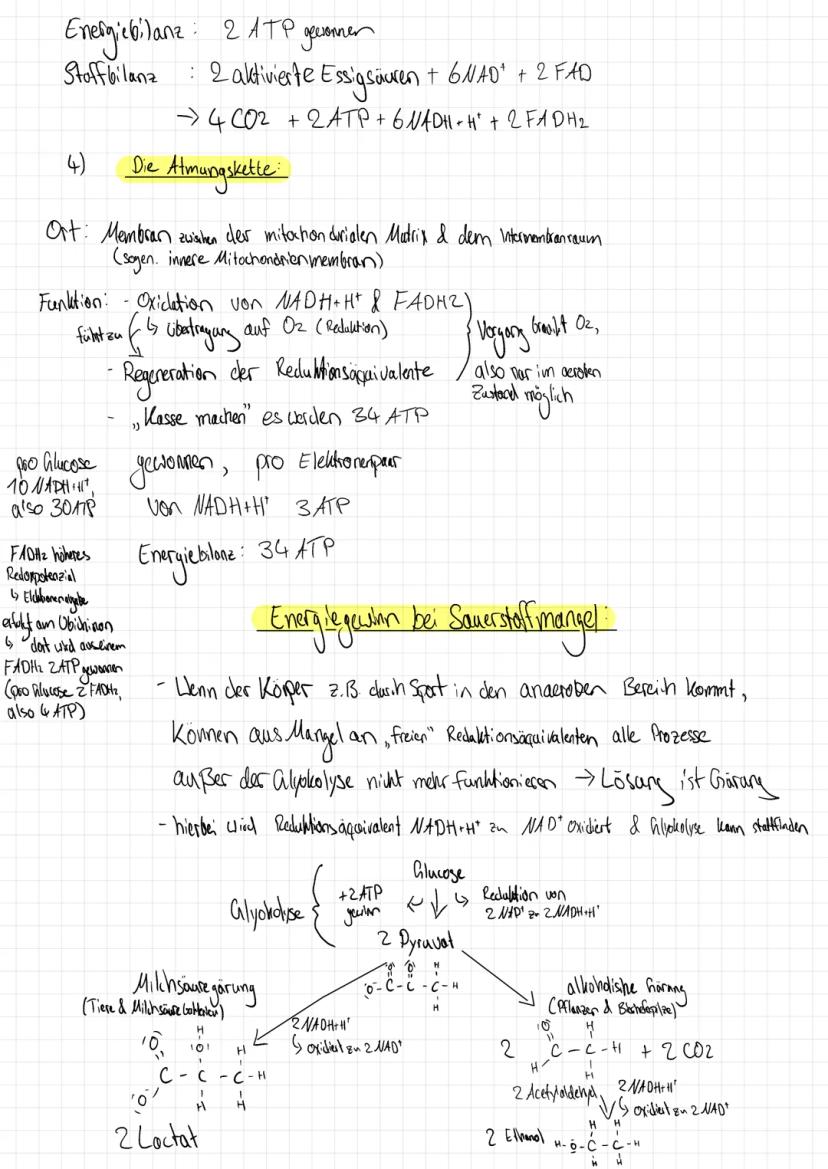 Energiebilanz: 2 ATP gewonnen
Stoffbilanz : 2 aktivierte Essigsäuren + 6NAD⁺ + 2 FAD
→ 4 CO2 + 2ATP + 6NADH+H⁺ + 2FADH2
4) Die Atmungskette:
Ort: Membran zwischen der mitochondrialen Matrix & dem Intermembranraum
(sogen. innere Mitochondrienmembran)
Funktion: - Oxidation von NADH+H⁺ & FADH2
führt zu ↳ Übertragung auf O2 (Reduktion)
Vorgang braucht O2,
- Regeneration der Reduktionsäquivalente
also nur im aeroben
Zustand möglich
- „Kasse machen" es werden 34 ATP
gewonnen, pro Elektronenpaar
von NADH+H⁺ 3 ATP
pro Glucose
10 NADH+H⁺,
also 30ATP
Energiebilanz: 34 ATP
FADH2 höheres
Redoxpotenzial
↳ Elektronenabgabe
erfolgt am Ubichinon
↳ dort wird aus einem
FADH2 2ATP gewonnen
(pro Glucose 2 FADH2,
also 4 ATP)
Energiegewinn bei Sauerstoffmangel:
- Wenn der Körper z.B. durch Sport in den anaeroben Bereich kommt,
können aus Mangel an „freien" Reduktionsäquivalenten alle Prozesse
außer der Glykolyse nicht mehr funktionieren → Lösung ist Gärung
- hierbei wird Reduktionsäquivalent NADH+H⁺ zu NAD⁺ oxidiert & Glykolyse kann stattfinden
Glucose
Glykolyse { +2ATP gewinn ↩ ↓ ↳ Reduktion von
2 NAD⁺ zu 2 NADH+H⁺
2 Pyruvat
O O H
O-C-C-C-H
H
Milchsäuregärung
(Tiere & Milchsäurebakterien)
2NADH+H⁺
↳ oxidiert zu 2 NAD⁺
H
O O H
C - C - C - H
O H H
2 Lactat
alkoholische Gärung
(Pflanzen & Bäckerhefepilze)
O H
2 C - C - H + 2 CO2
H H
2 Acetaldehyd 2NADH+H⁺
↳ oxidiert zu 2 NAD⁺
H H
2 Ethanol H-O-C-C-H
H H